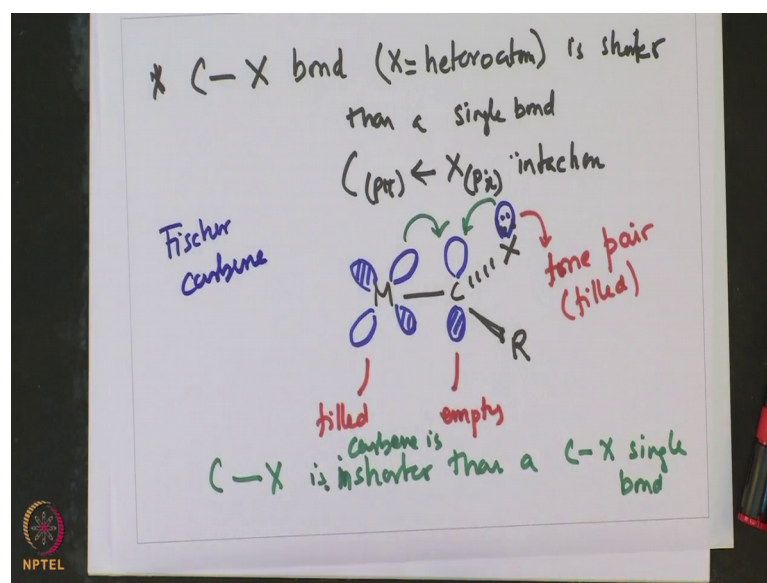 * C-X bond (X=heteroatom) is shorter
than a single bond
C(pπ) ← X(pπ) interaction
Fischer
carbene
M — C
X
R
lone pair
(filled)
filled
empty
carbene is
C-X is in shorter than a C-X single
bond
NPTEL